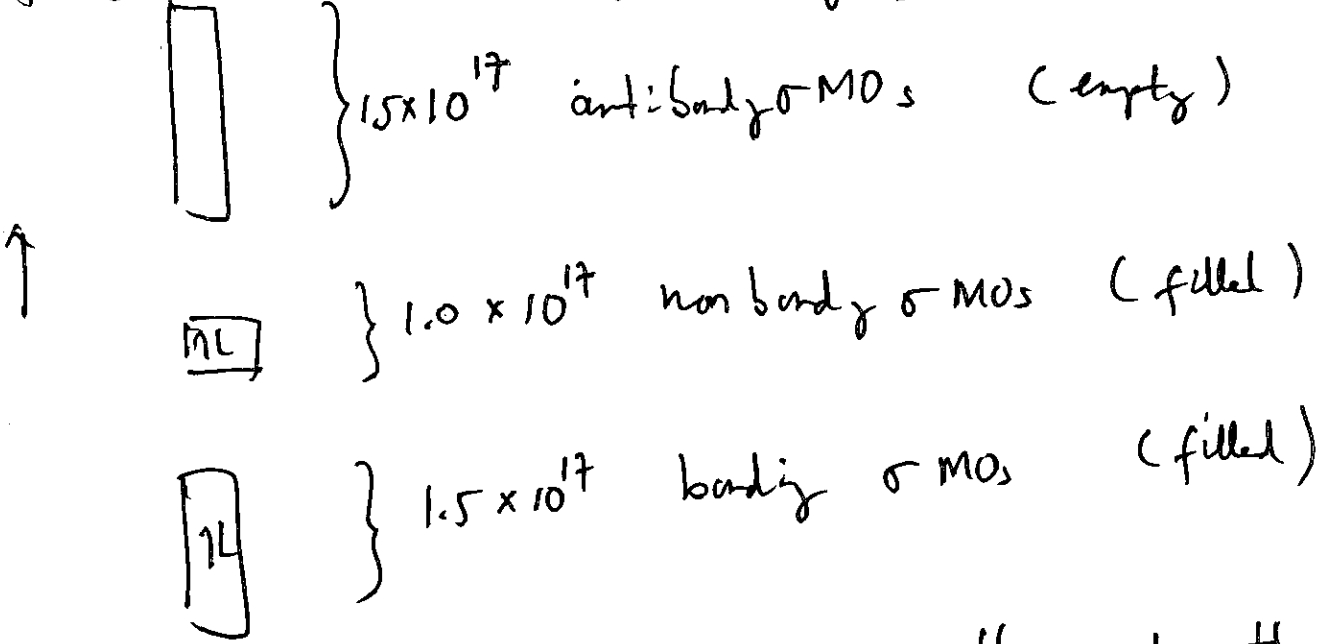 15×10¹⁷ antibondg σ MOs (empty)
↑
1.0 × 10¹⁷ nonbondg σ MOs (filled)
1L
1.5 × 10¹⁷ bonding σ MOs (filled)
1L